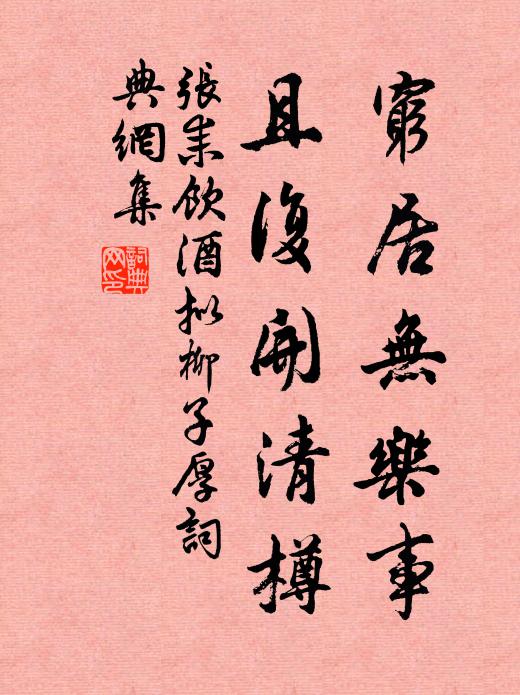 窮居無樂事
且復開清樽
張耒飲酒擬柳子厚詞
典網集
詞典
網印